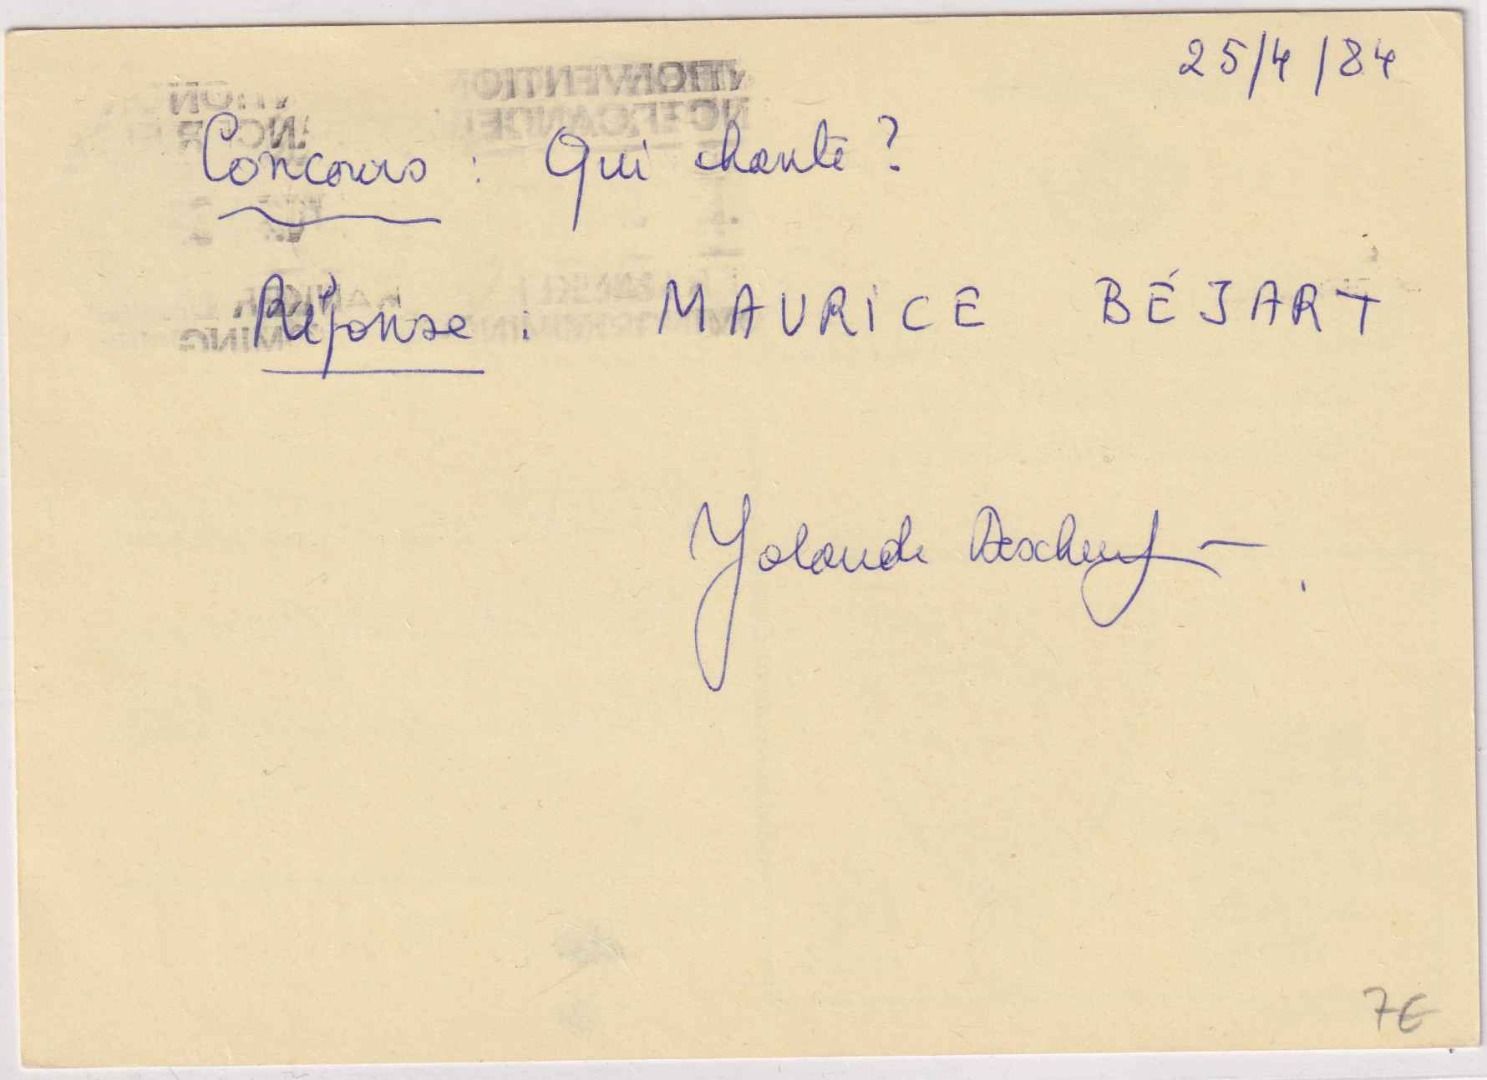 25/4/84
Concours : Qui chante ?
Réponse : MAURICE BÉJART
Yolande
7€